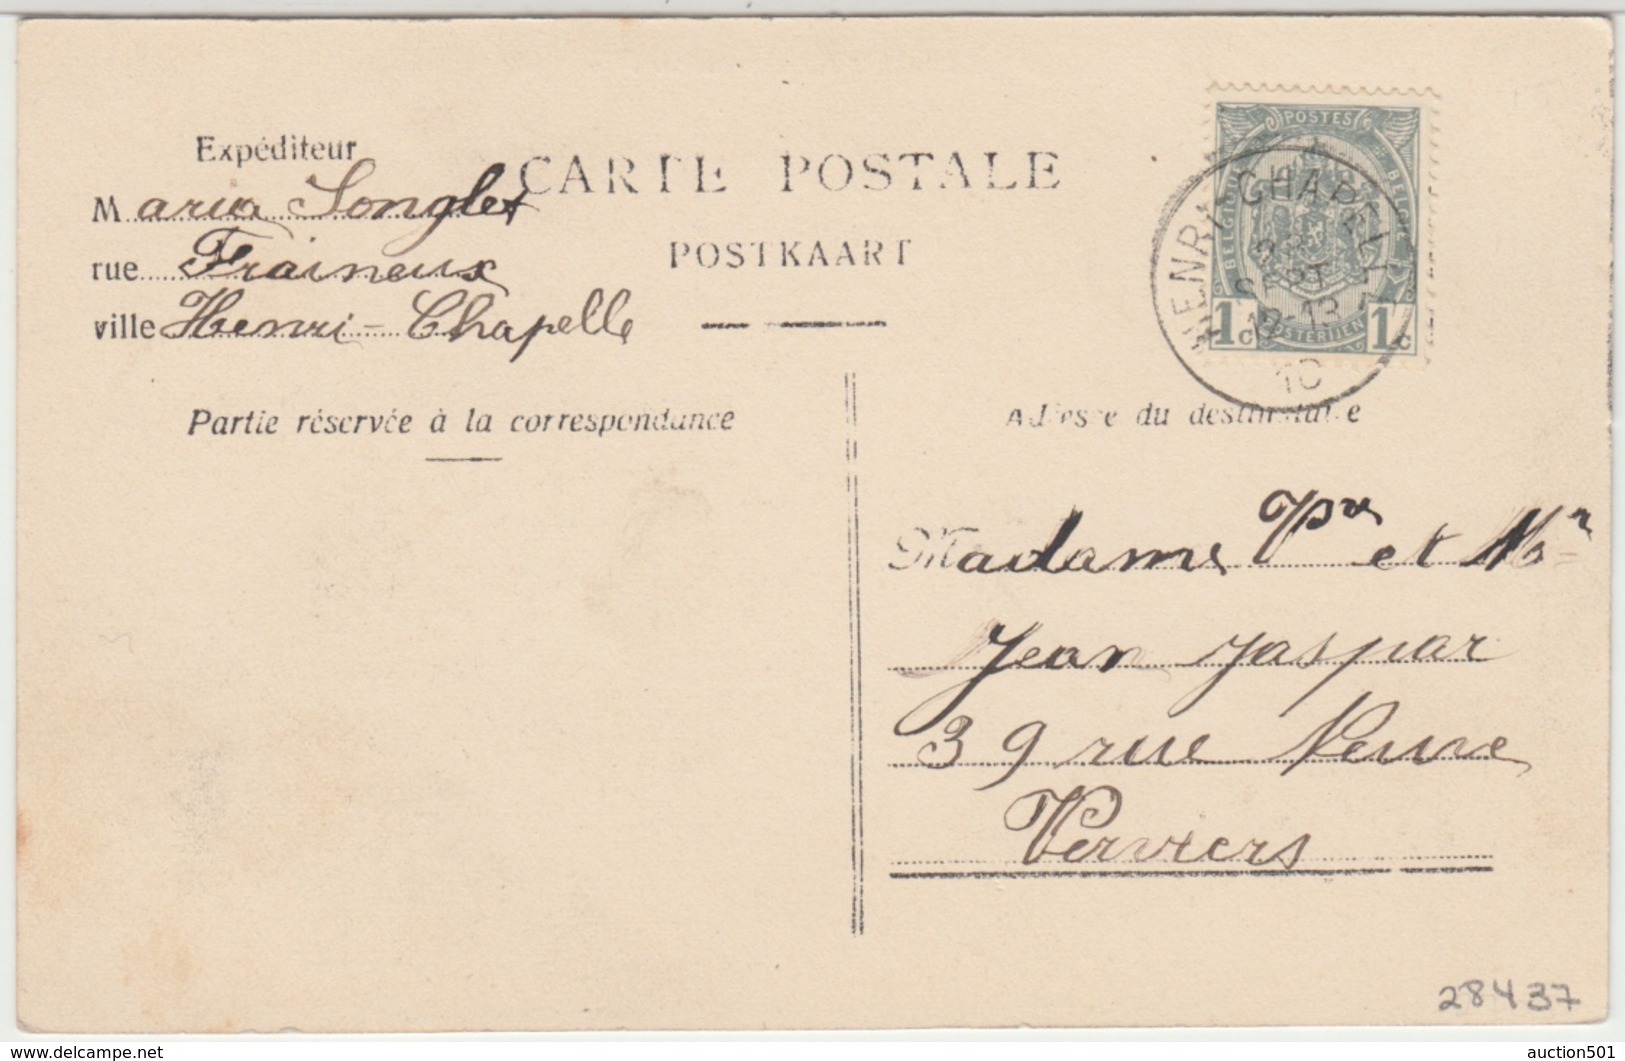 Expéditeur
CARTE POSTALE
Maria Songlet
POSTKAART
rue Fraineux
ville Henri-Chapelle
Partie réservée à la correspondance
Adresse du destinataire
POSTES
BELGIQUE
BELGIE
1c
POSTERIJEN
1c
HENRI-CHAPELLE
SEPT
10
Madame Vve et Mr
Jean Jaspar
39 rue Neuve
Verviers
28437
auction501